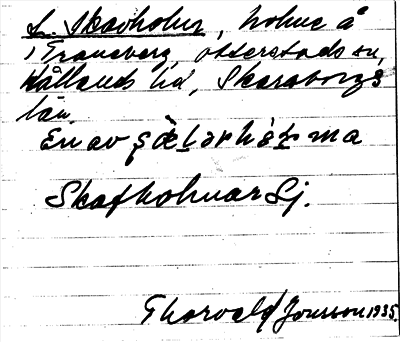 L. Skavholm, holme å
i Traneberg, Otterstads sn,
Kållands hd, Skaraborgs
län.
En av
Skafholmar Sj.
Thorvald Jonsson 1935.